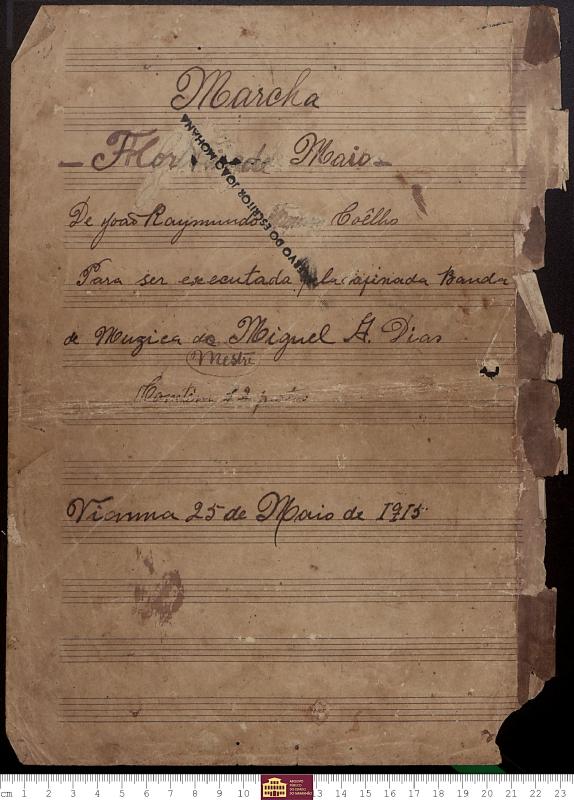 Marcha
- Flor de Maio -
De João Raymundo Coêlho
Para ser executada pela afinada Banda
de Muzica do Miguel A. Dias
Mestre
Contém 12 partes
Vianna 25 de Maio de 1915
ARQUIVO DO ESCRITOR JOÃO MOHANA
cm 1 2 3 4 5 6 7 8 9 10 13 14 15 16 17 18 19 20 21 22 23
ARQUIVO
PÚBLICO
DO ESTADO
DO MARANHÃO